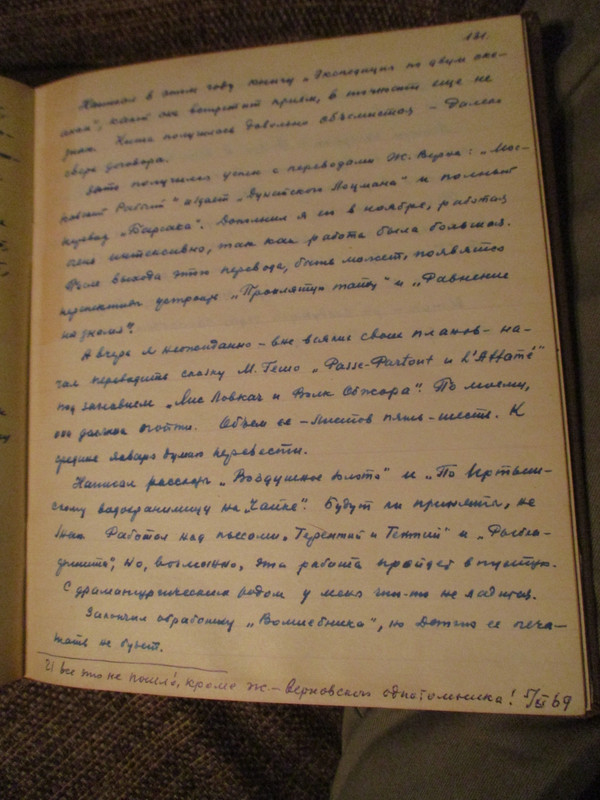 181.
Написал в этом году книгу „Экспедиция на двум оке-
анам", какой она встретит прием, в точности еще не
знаю. Книга получилась довольно объемистая – далеко
сверх договора.
получился успех с переводами Ж. Верна: „Мос-
ковский Рабочий" издает „Дунайского Лоцмана" и полный
перевод „Барсака". Дополнил я его в ноябре, работая
очень интенсивно, так как работа была большая.
После выхода этого перевода, быть может, появятся
перспективы устроить „Проклятую тайну" и „Равнение
на знамя".
А вчера я неожиданно – вне всяких своих планов – на-
чал переводить сказку М. Гешо „Passe-Partout и L'Affamé"
под заглавием „Лис Ловкач и Волк Обжора". По моему,
она должна пойти. Объем ее – листов пять-шесть. К
средине января думаю перевести.
Написал рассказы „Воздушное золото" и „По
водохранилищу на Чайке". Будут ли приняты, не
знаю. Работал над пьесами „Терентий и Тентий" и
но, возможно, эта работа пройдет впустую.
С драматургическим родом у меня что-то не ладится.
Закончил обработку „Волшебника", но Детгиз ее печа-
тать не будет.
2) Все это не пошло, кроме Ж.-Верновского однотомника! 5/XI 69